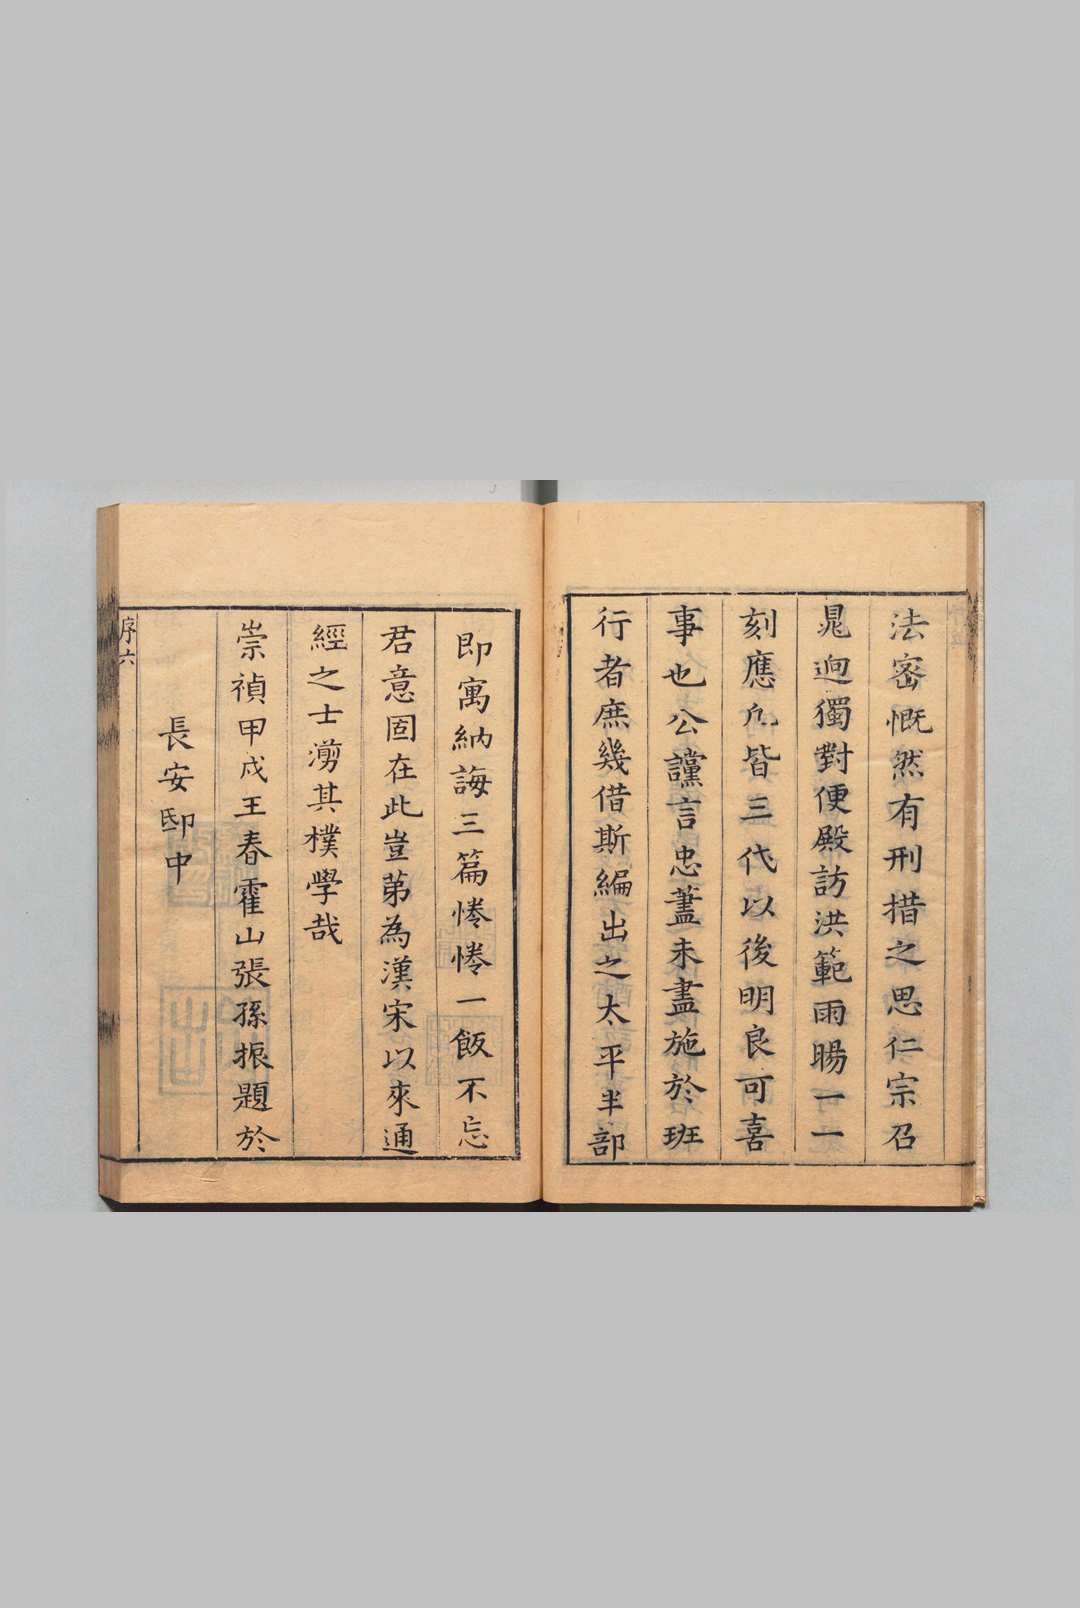 法密慨然有刑措之思仁宗召
晁迥獨對便殿訪洪範雨暘一一
刻應凢皆三代以後明良可喜
事也公讜言忠藎未盡施於班
行者庶幾借斯編出之太平半部
即寓納誨三篇惓惓一飯不忘
君意固在此豈苐為漢宋以來通
經之士溯其樸學哉
崇禎甲戍王春霍山張孫振題於
長安邸中
序六